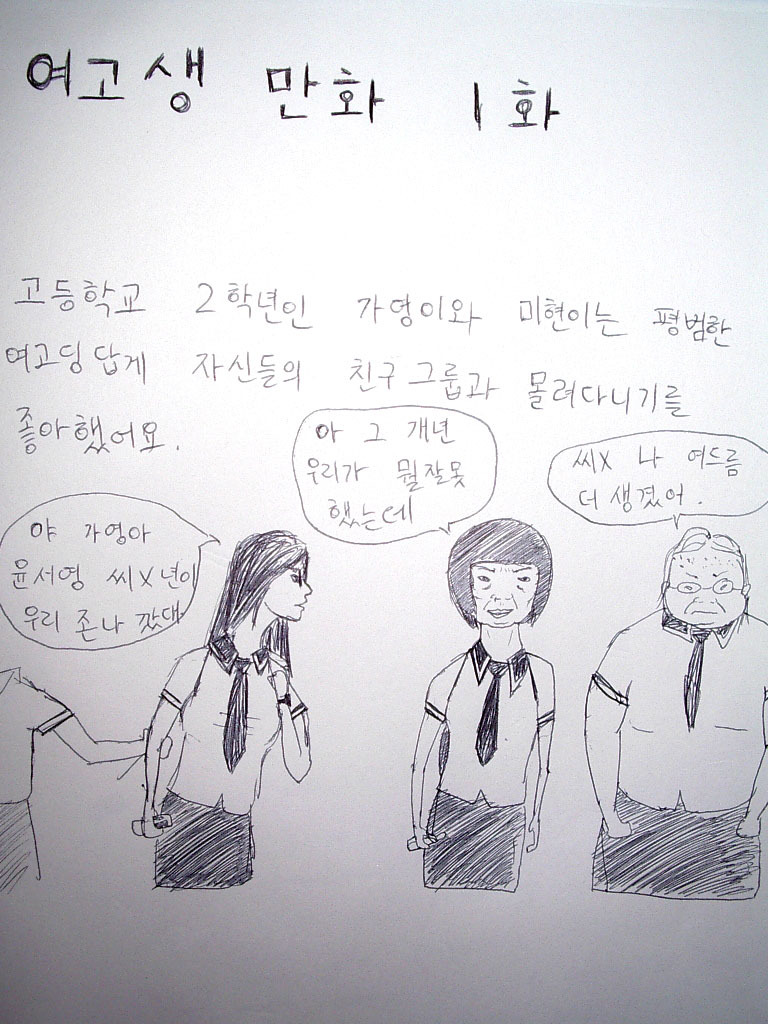 여고생 만화 1화
고등학교 2학년인 가영이와 미현이는 평범한
여고딩 답게 자신들의 친구 그룹과 몰려다니기를
좋아했어요.
야 가영아
윤서영 씨X년이
우리 존나 깠대
아 그 개년
우리가 뭘잘못
했는데
씨X 나 여드름
더 생겼어.